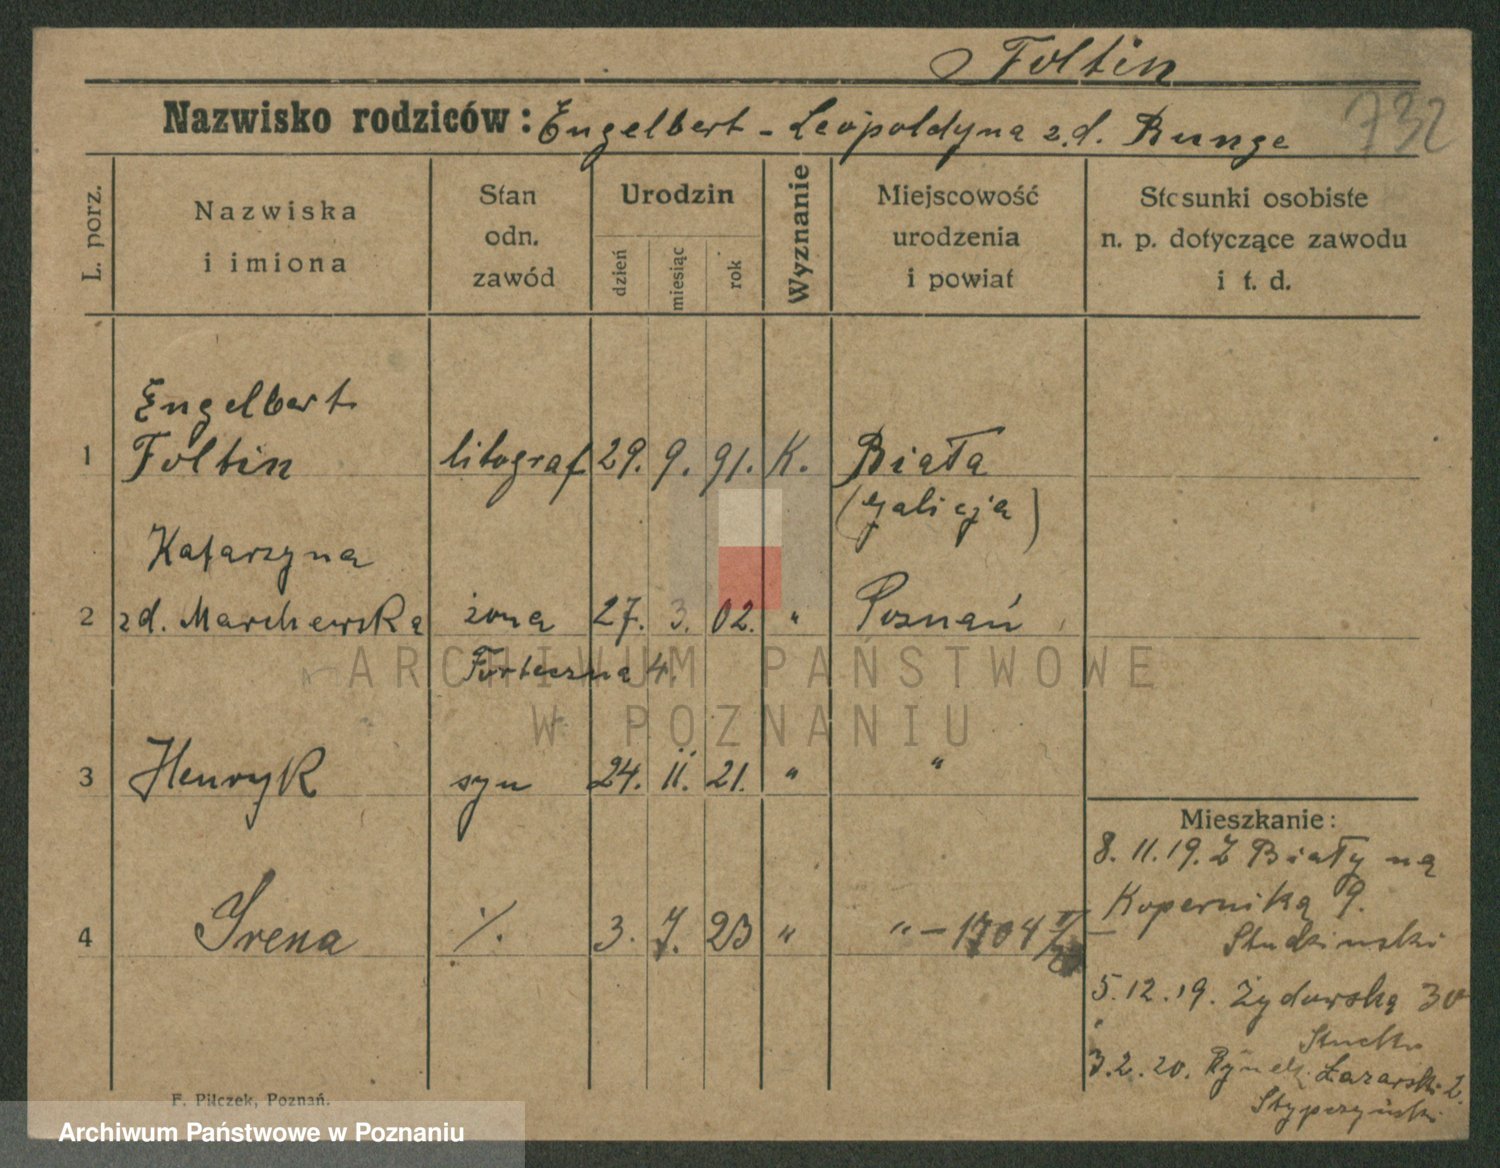 Foltin
732
Nazwisko rodziców: Engelbert - Leopoldyna z.d. Runge
L. porz.
Nazwiska i imiona
Stan odn. zawód
Urodzin
dzień miesiąc rok
Wyznanie
Miejscowość urodzenia i powiat
Stosunki osobiste n. p. dotyczące zawodu i t. d.
Engelbert
1 Foltin litograf 29. 9. 91. K. Biała
(Galicja)
Katarzyna
2 zd. Marchewska żona 27. 3. 02. " Poznań
Forteczna 4.
3 Henryk syn 24. 11. 21. " "
4 Irena /. 3. 7. 23 " " - 1704
Mieszkanie:
8. 11. 19. Z Biały na
Kopernika 9.
Studzinski
5. 12. 19. Żydowska 30
3. 2. 20. Rynek Łazarski 2.
Stypczyński
F. Pilczek, Poznań.
ARCHIWUM PAŃSTWOWE
W POZNANIU
Archiwum Państwowe w Poznaniu